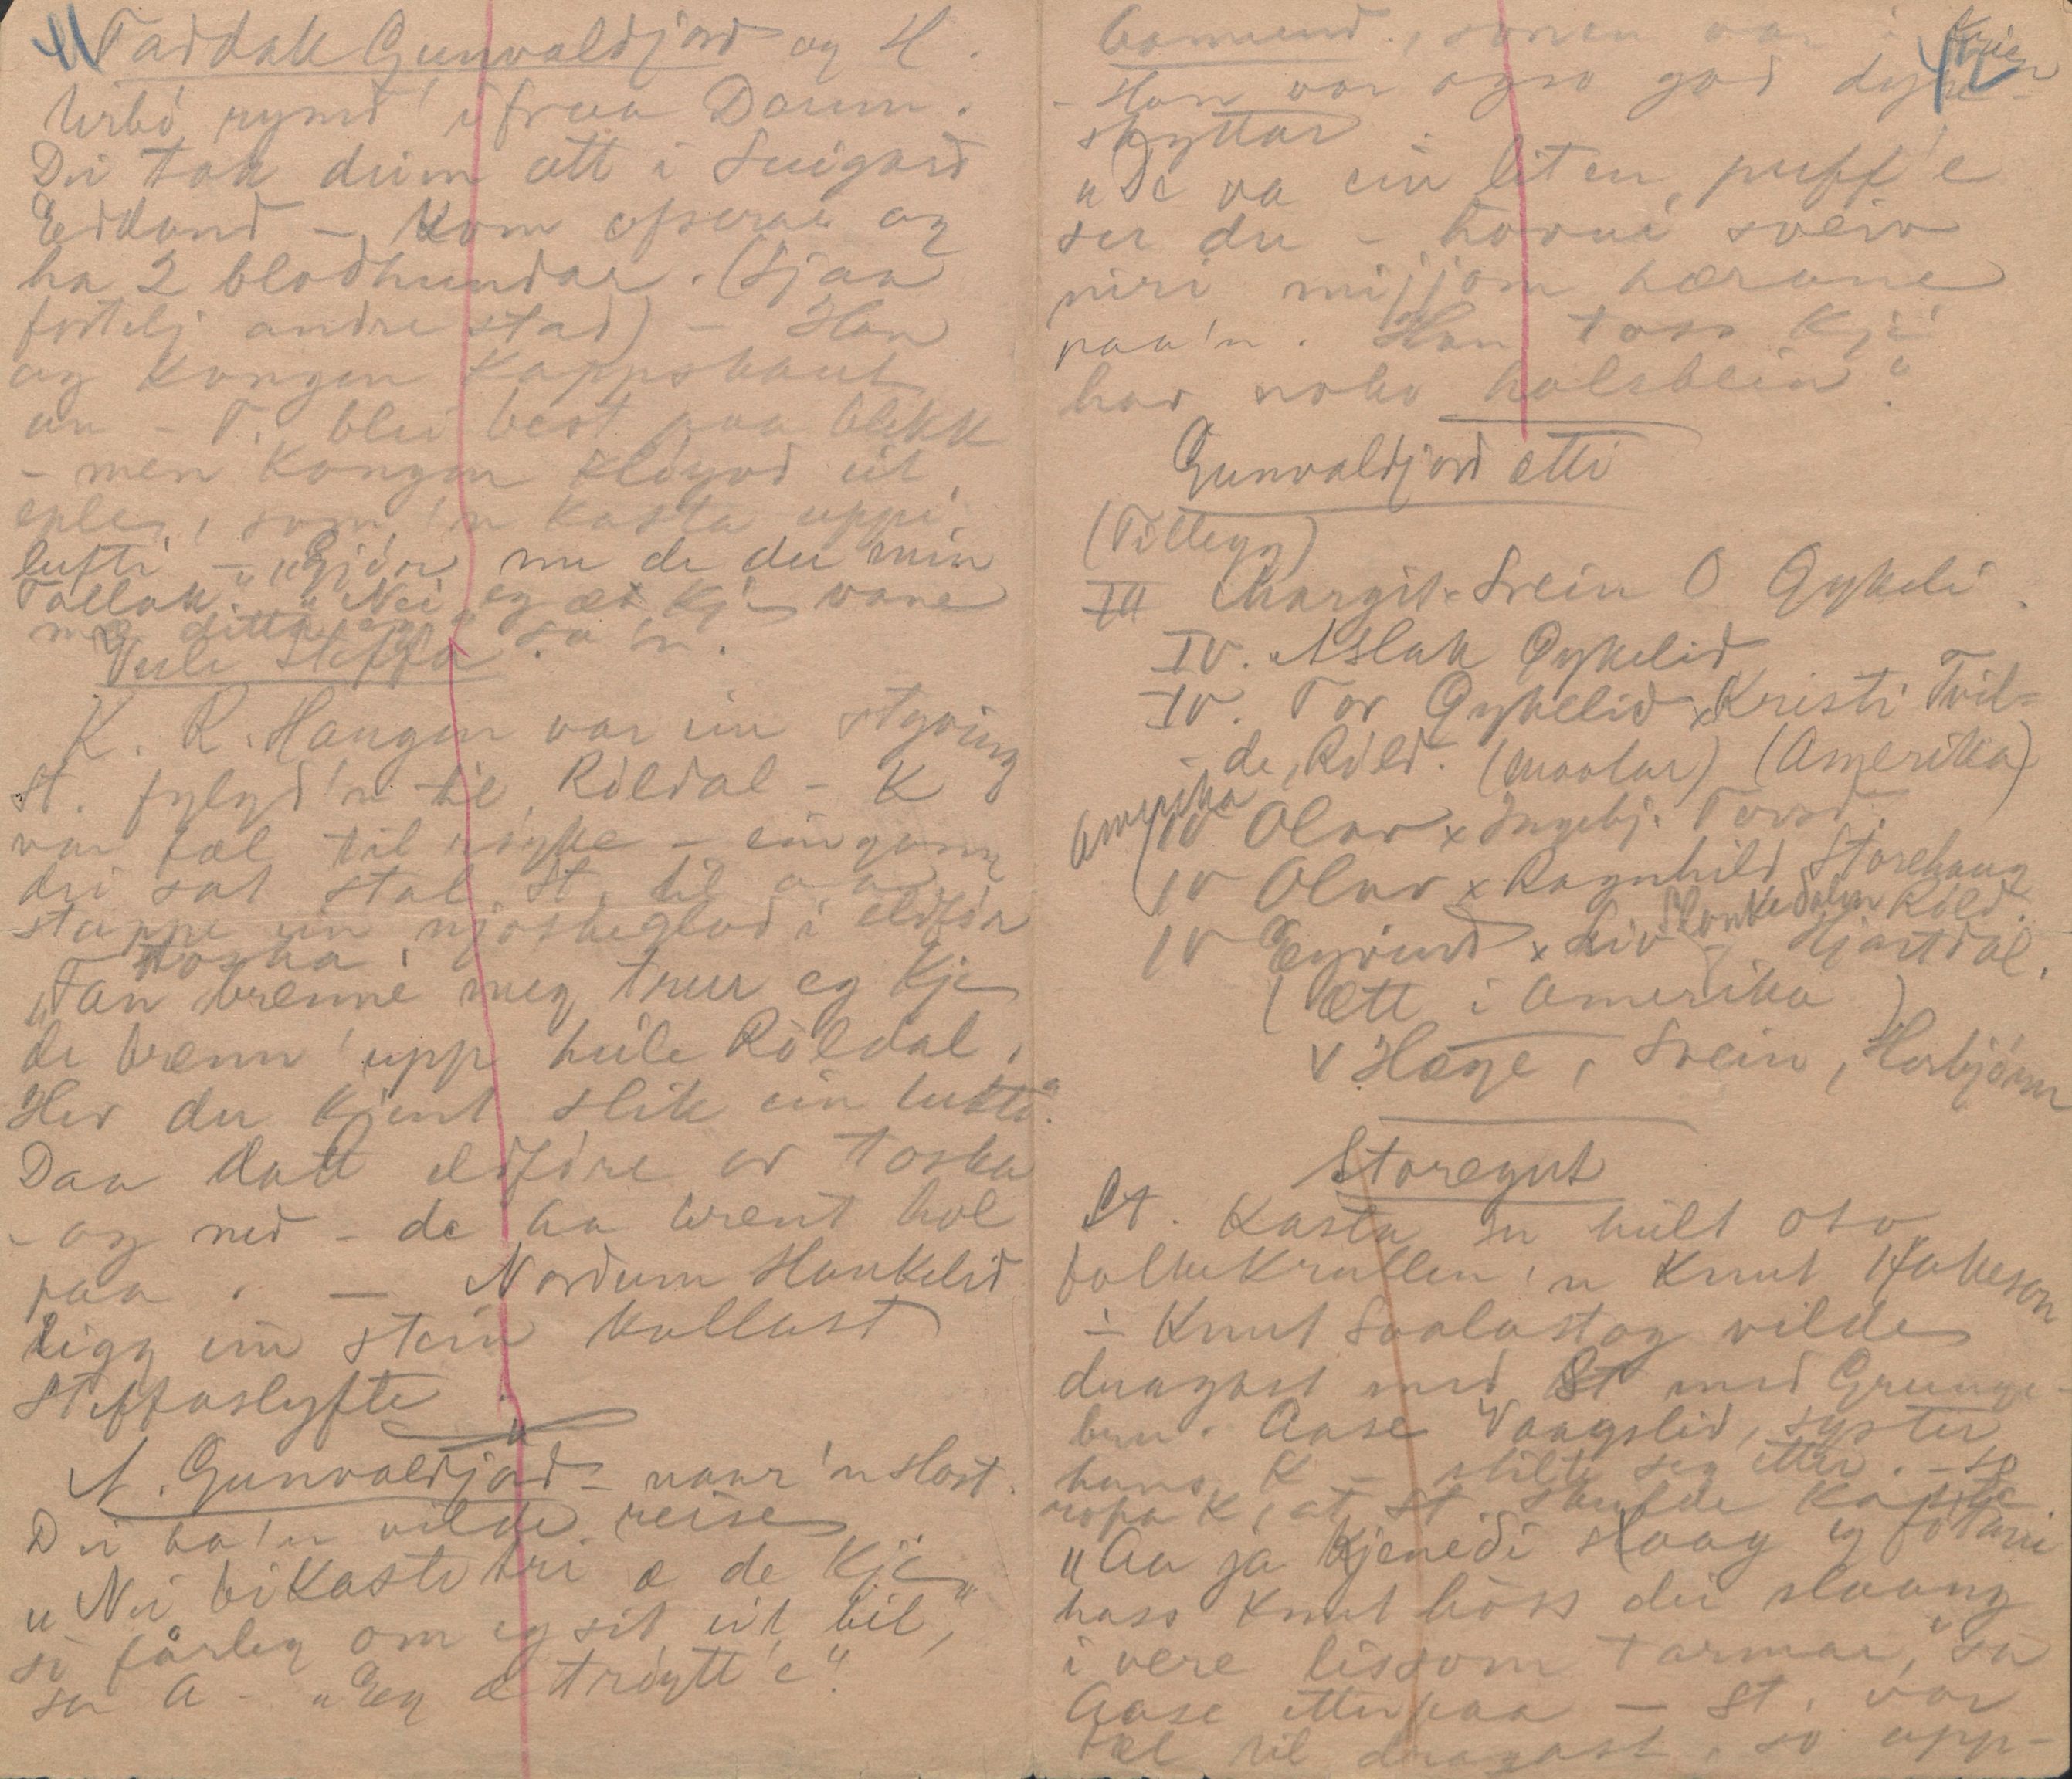 41
Taddak Gunvaldjord og H.
Urbö rymd' ifraa Danm.
Dei tok deim att i Svigard
Eidland – Kom afserat og
ha 2 blodhundar. (Sjaa
fortelj andre stad) – Han
og Kongen Kappskaut
un – T. blei best paa blikk
– men Kongen kløyvd ut
eple, som 'n kasta uppi
lufti – "Gjör nu de du min
Tallak" "Nei eg æ kje vane
mæ ditta" sa 'n.
Vesle Steffa
K. R. Haugen var ein styving
St. fylgd 'n til Röldal – K
var fæl til röykje – eingong
dei sat stal St. til aa
stappe ein njoskeglod i eldför
toska
"Tan brenne meg trur eg kje
de brenn' upp heile Röldal,
Her du kjent slik ein lukt"
Daa datt eldföre or toska
– og ned – de ha brent hol
paa. – Nordum Haukelid
ligg ein stein kallast
Steffaslyfte
A. Gunvaldjord – naar 'n Hast.
Dei ba 'n vilde reise
"Nei bikasti hri æ de kje
so fårleg om eg sit eit bil,"
sa A – "Eg æ tröytt'e".
42
Gamund., sonen var i
– Han var ogso god dyre-
skyttar
"De va ein liten puff'e
ser du – hovui sveiv
niri mijjom hærane
paa 'n. Han toss kje
hav noko halsbein".
Gunvaldjord ætti
(Tillegg)
III Margit x Svein O Gykeli.
IV. Aslak Gykelid
IV. Tor Gykelid x Kristi Tvil-
de, Röld. (maalar) (Amerika)
Amerika
IV Olav x Ingebj. Torsd.
IV Olav x Ragnhild Storehaug
Röld.
IV Eyvind x Liv Haukedalen Hjartdal.
(Ætt i Amerika)
V Hæge, Svein, Herbjörn
Storegut
St. Kasta sn heilt oto
folkekrullen 'n Knut Hakeson
– Knut Saalastog vilde
dragast med St med Grunge-
bru. Aase Vaagslid, syster
hans K – stilte seg etter. – so
ropa K, at St. skulde kaste
"Aa ja kjeneidi slaag eg fötanne
hass Knut höss dei slaang
i vere lissom tarmar," sa
Aase etterpaa – St. var
fæl til dragast, so upp-